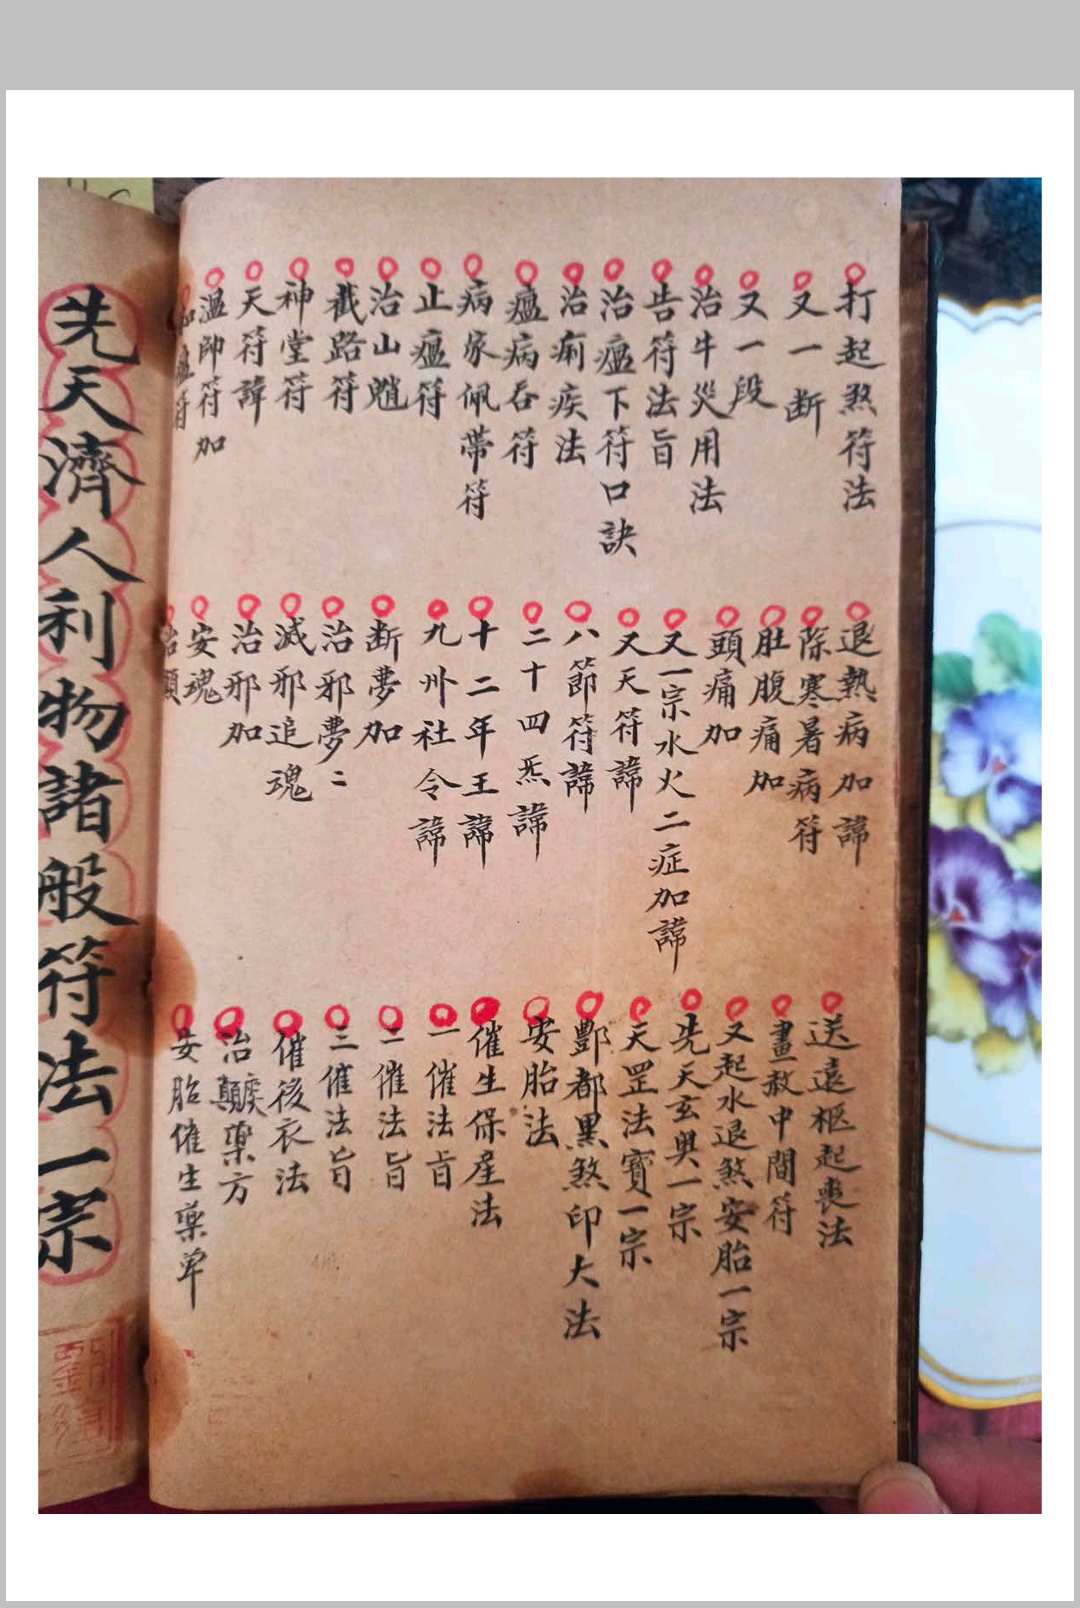 打起煞符法
又一断
又一段
治牛災用法
告符法旨
治瘟下符口訣
治痢疾法
瘟病吞符
病家佩帶符
止瘟符
治山魈
截路符
神堂符
天符諱
溫帥符加
加瘟符
退熱病加諱
除寒暑病符
肚腹痛加
頭痛加
又一宗水火二症加諱
又天符諱
八節符諱
二十四炁諱
十二年王諱
九州社令諱
断夢加
治邪夢二
滅邪追魂
治邪加
安魂
治顛
送遠柩起喪法
畫赦中間符
又起水退煞安胎一宗
先天玄奥一宗
天罡法寳一宗
酆都黑煞印大法
安胎法
催生保產法
一催法旨
二催法旨
三催法旨
催後衣法
治顛疾藥方
安胎催生藥单
先天濟人利物諸般符法一宗